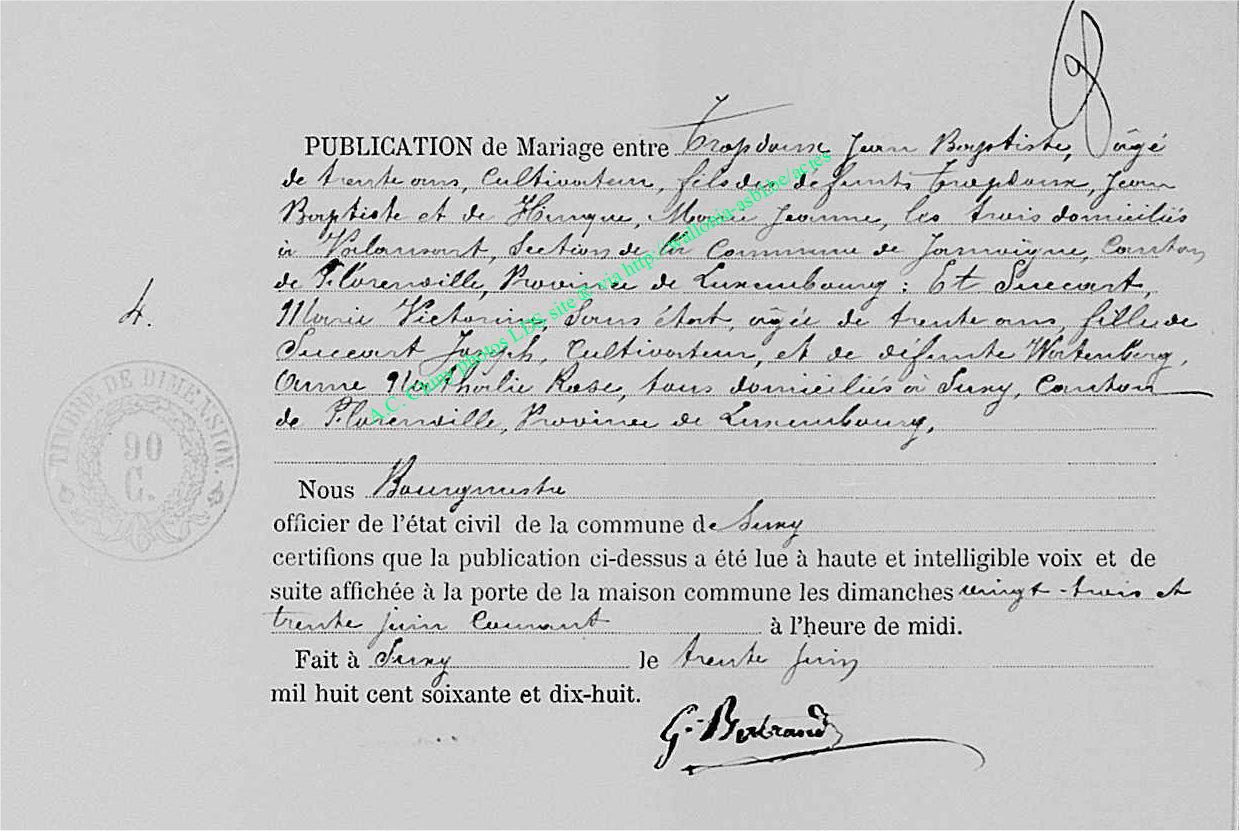 98
PUBLICATION de Mariage entre Tropdoux Jean Baptiste, âgé
de trente ans, Cultivateur, fils de défunts Tropdoux, Jean
Baptiste et de Hinque, Marie Jeanne, les trois domiciliés
à Valansart, Section de la Commune de Jamoigne, Canton
de Florenville, Province de Luxembourg : Et Succart,
4.
Marie Victorine, Sans état, âgée de trente ans, fille de
Succart Joseph, Cultivateur, et de défunte Wartenberg,
Anne Nathalie Rose, tous domiciliés à Suxy, Canton
de Florenville, Province de Luxembourg,
TIMBRE DE DIMENSION.
90
C.
Nous Bourgmestre
officier de l'état civil de la commune de Suxy
certifions que la publication ci-dessus a été lue à haute et intelligible voix et de
suite affichée à la porte de la maison commune les dimanches vingt-trois et
trente juin Courant à l'heure de midi.
Fait à Suxy le trente Juin
mil huit cent soixante et dix-huit.
G. Bertrand
A.C. Chiny photos LDS site ® via http://wallonia-asbl.be/actes